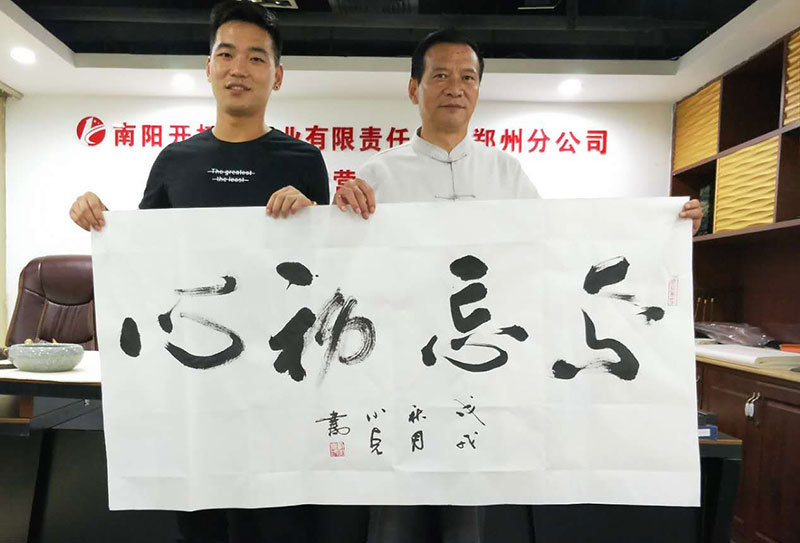 南阳开 业有限责任 郑州分公司
营
The greatest
the least
不忘初心
戊戌
秋月
小
書